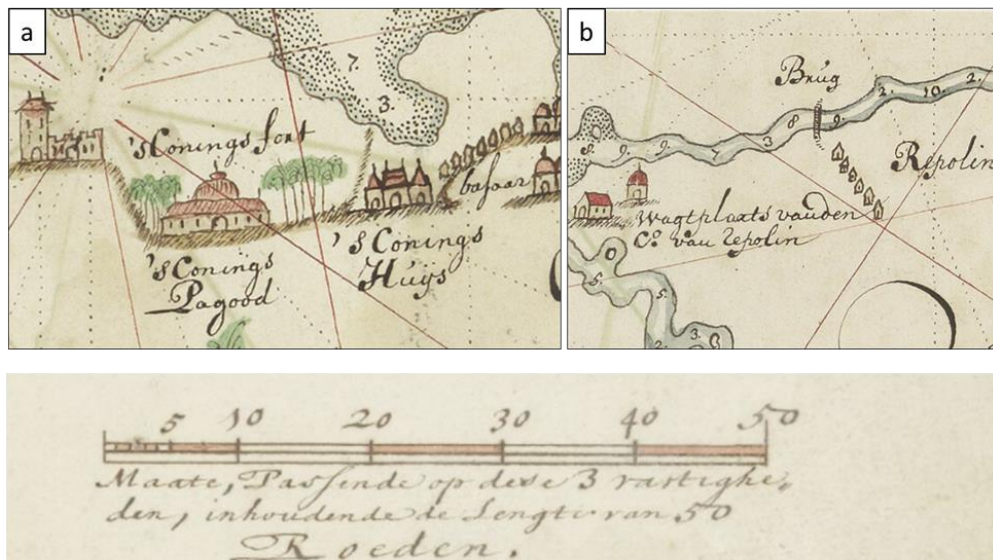 a
7.
3.
's Conings fort
basaar
's Conings
Pagood
's Conings
Huijs
b
Brug
2. 10. 2.
8 9.
9. 9. 7 3
Repolin
Wagtplaats vanden
Co. van Repolin
5.
5.
3.
5 10 20 30 40 50
Maate, Passende op dese 3 vastighe„
den, inhoudende de Lengte van 50
Roeden.